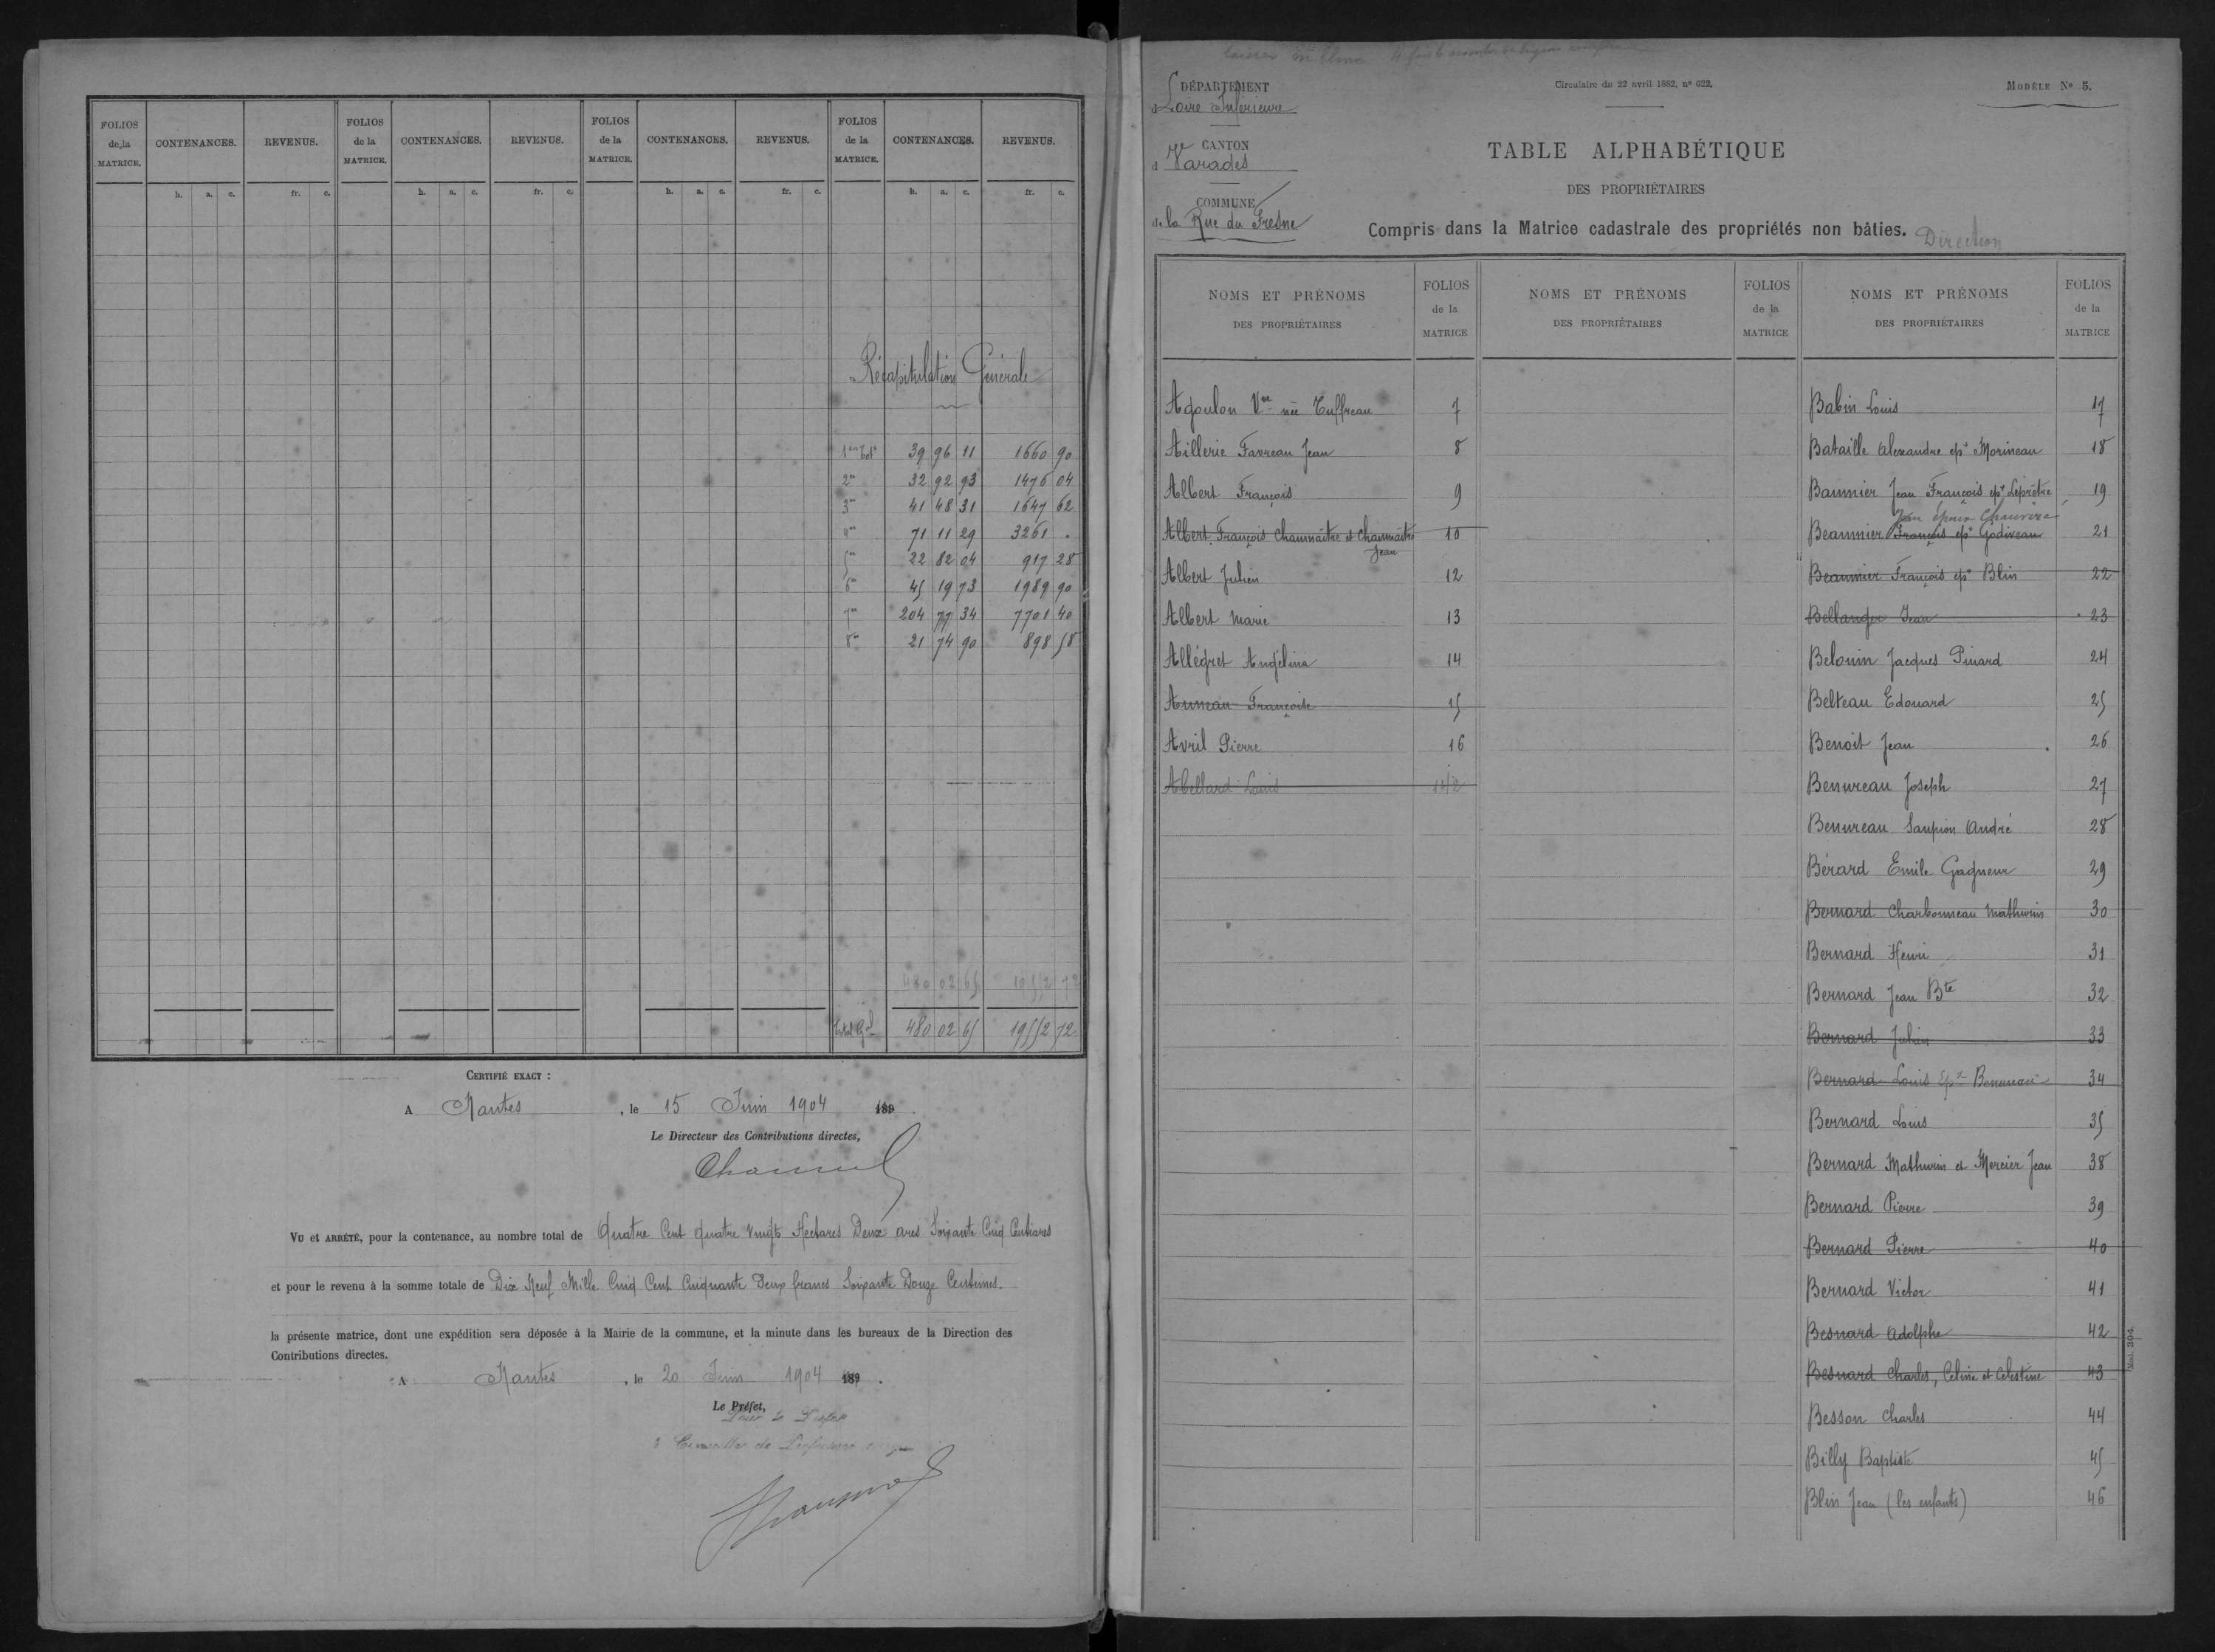 FOLIOS de la MATRICE. CONTENANCES. REVENUS. FOLIOS de la MATRICE. CONTENANCES. REVENUS. FOLIOS de la MATRICE. CONTENANCES. REVENUS. FOLIOS de la MATRICE. CONTENANCES. REVENUS.
h. a. c. fr. c. h. a. c. fr. c. h. a. c. fr. c. h. a. c. fr. c.
Récapitulation Générale
39 96 11 1660 90
2me 32 92 93 1476 04
3me 41 48 31 1647 62
4me 71 11 29 3261 .
5me 22 82 04 917 28
6me 45 19 73 1989 90
7me 204 77 34 7701 40
8me 21 74 90 898 58
480 02 65 19552 72
Total Gal 480 02 65 19552 72
CERTIFIÉ EXACT :
A Nantes, le 15 Juin 1904 189 .
Le Directeur des Contributions directes,
VU et ARRÊTÉ, pour la contenance, au nombre total de Quatre Cent Quatre Vingts Hectares Deux ares Soixante Cinq Centiares
et pour le revenu à la somme totale de Dix Neuf Mille Cinq Cent Cinquante Deux francs Soixante Douze Centimes.
la présente matrice, dont une expédition sera déposée à la Mairie de la commune, et la minute dans les bureaux de la Direction des
Contributions directes.
A Nantes, le 20 Juin 1904 189 .
Le Préfet,
Pour le Préfet
DÉPARTEMENT
d Loire Inférieure
CANTON
d Varades
COMMUNE
de la Rue du Fresne
Circulaire du 22 avril 1882, nº 622.
MODÈLE Nº 5.
TABLE ALPHABÉTIQUE
DES PROPRIÉTAIRES
Compris dans la Matrice cadastrale des propriétés non bâties.
Direction
NOMS ET PRÉNOMS DES PROPRIÉTAIRES FOLIOS de la MATRICE NOMS ET PRÉNOMS DES PROPRIÉTAIRES FOLIOS de la MATRICE NOMS ET PRÉNOMS DES PROPRIÉTAIRES FOLIOS de la MATRICE
Agoulon Vve née Tuffreau 7
Aillerie Favreau Jean 8
Albert François 9
Albert François Chaumaitre et Chaumaitre Jean 10
Albert Julien 12
Albert Marie 13
Allégret Angélina 14
Auneau Françoise 15
Avril Pierre 16
Abellard Louis
Babin Louis 17
Bataille Alexandre epx Morineau 18
Baumier Jean François epx Leprêtre 19
Jean époux Chauviré
Beaumier François epx Godiveau 21
Beaumier François epx Blin 22
Bellanger Jean 23
Belouin Jacques Pinard 24
Belteau Edouard 25
Benoit Jean 26
Benureau Joseph 27
Benureau Saupion André 28
Bérard Emile Gagneur 29
Bernard Charbonneau Mathurin 30
Bernard Henri 31
Bernard Jean Bte 32
Bernard Julien 33
Bernard Louis Epx 34
Bernard Louis 35
Bernard Mathurin et Mercier Jean 38
Bernard Pierre 39
Bernard Pierre 40
Bernard Victor 41
Besnard Adolphe 42
Besnard Charles, Celine et Celestine 43
Besson Charles 44
Billy Baptiste 45
Blin Jean (les enfants) 46
Mod. 304